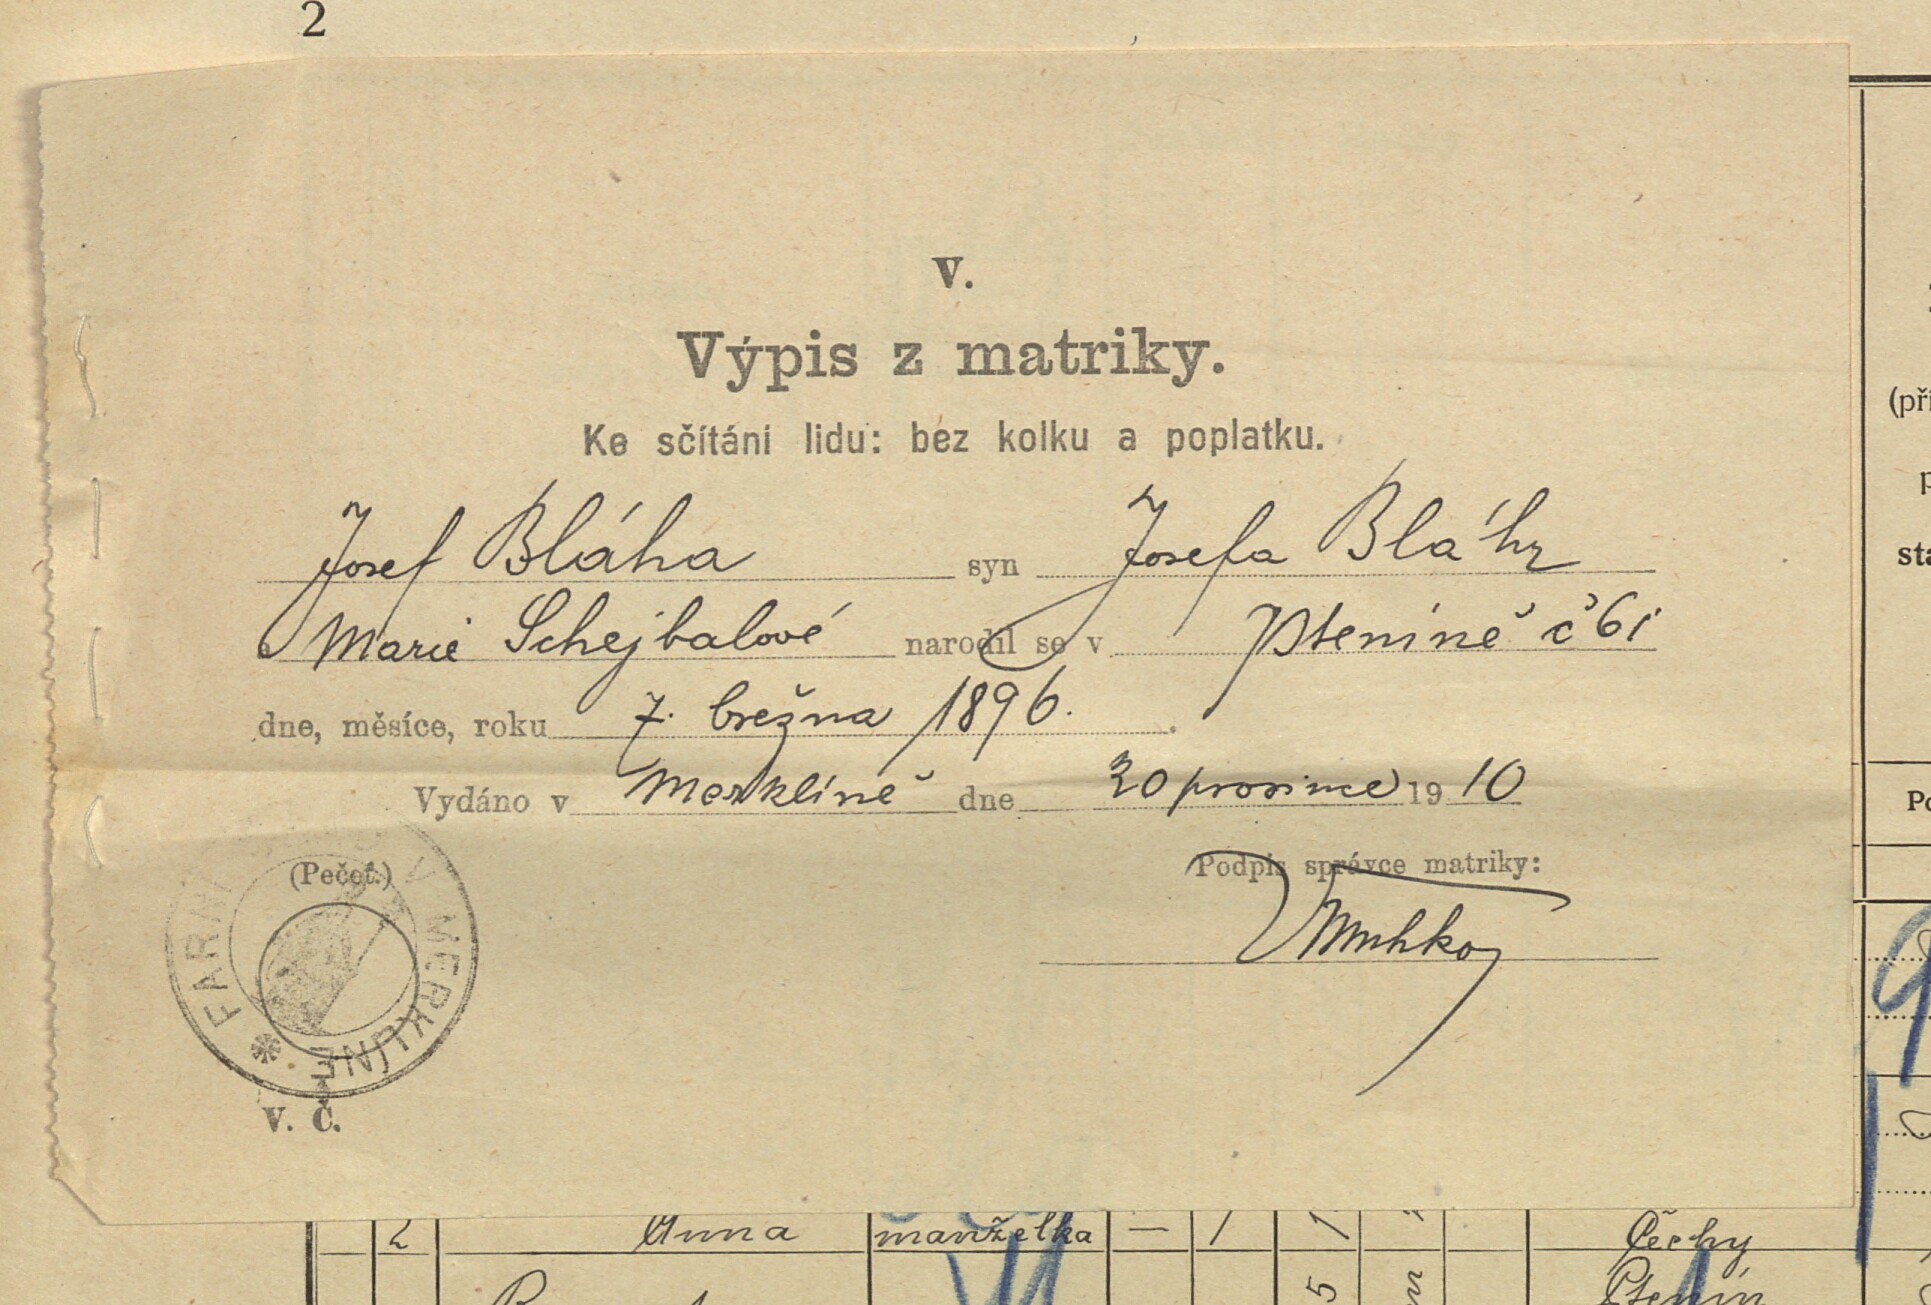 2
V.
Výpis z matriky.
Ke sčítání lidu: bez kolku a poplatku.
Josef Bláha syn Josefa Bláhy
Marie Schejbalové narodil se v Ptenině č 61
dne, měsíce, roku 7. března 1896.
Vydáno v Merklíně dne 30 prosince 1910
(Pečeť.)
Podpis správce matriky:
FARNÍ V MERKLÍNĚ
V. Č.
2 Anna manželka — 1 1 Čechy
5 Ptenín
(při
p
sta
Po